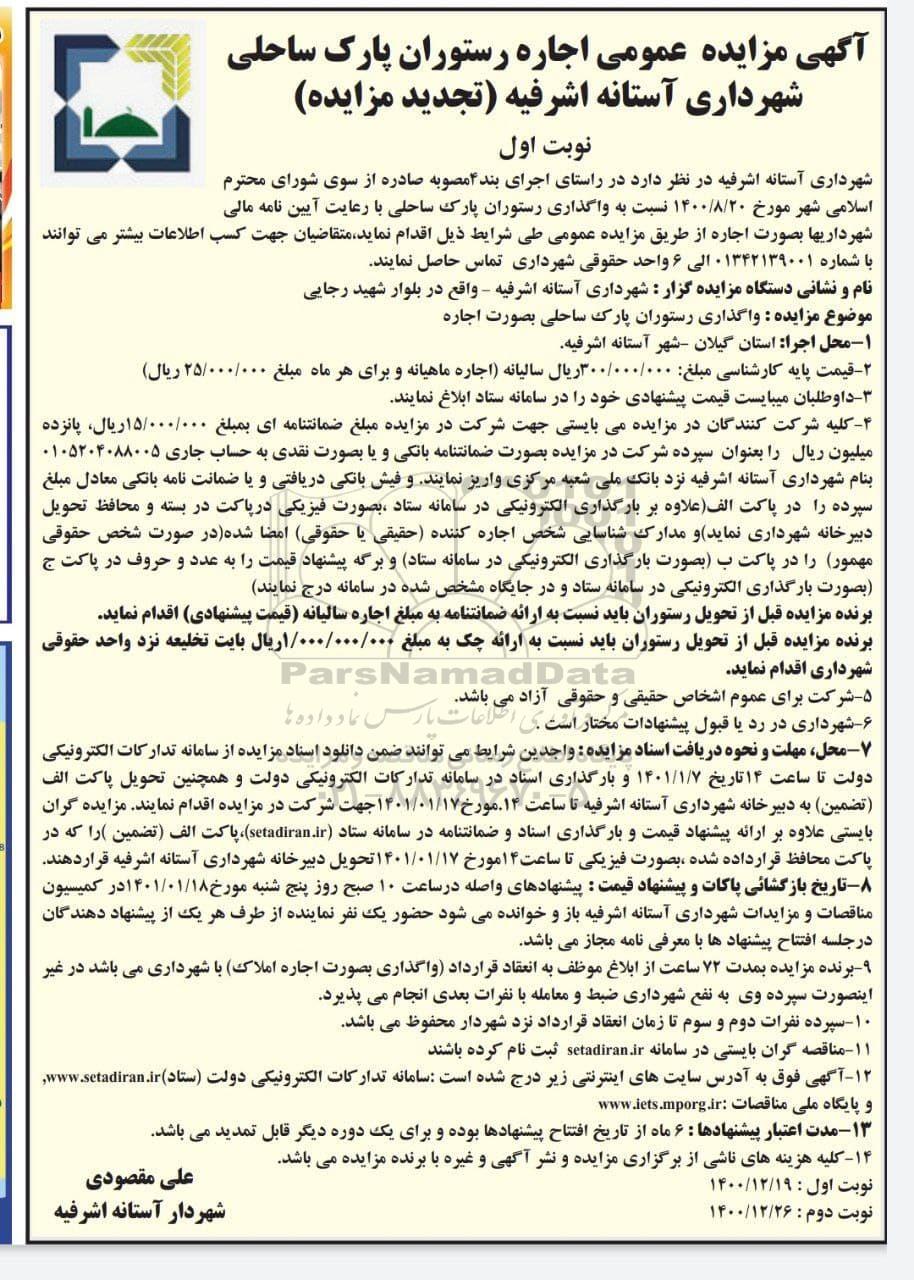 آگهی مزایده عمومی اجاره رستوران پارک ساحلی
شهرداری آستانه اشرفیه (تجدید مزایده)
نوبت اول
شهرداری آستانه اشرفیه در نظر دارد در راستای اجرای بند۴مصوبه صادره از سوی شورای محترم
اسلامی شهر مورخ ۱۴۰۰/۸/۲۰ نسبت به واگذاری رستوران پارک ساحلی با رعایت آیین نامه مالی
شهرداریها بصورت اجاره از طریق مزایده عمومی طی شرایط ذیل اقدام نماید،متقاضیان جهت کسب اطلاعات بیشتر می توانند
با شماره ۰۱۳۴۲۱۳۹۰۰۱ الی ۶ واحد حقوقی شهرداری تماس حاصل نمایند.
نام و نشانی دستگاه مزایده گزار : شهرداری آستانه اشرفیه – واقع در بلوار شهید رجایی
موضوع مزایده : واگذاری رستوران پارک ساحلی بصورت اجاره
۱–محل اجرا: استان گیلان –شهر آستانه اشرفیه.
۲–قیمت پایه کارشناسی مبلغ: ۳۰۰/۰۰۰/۰۰۰ریال سالیانه (اجاره ماهیانه و برای هر ماه مبلغ ۲۵/۰۰۰/۰۰۰ ریال)
۳–داوطلبان میبایست قیمت پیشنهادی خود را در سامانه ستاد ابلاغ نمایند.
۴–کلیه شرکت کنندگان در مزایده می بایستی جهت شرکت در مزایده مبلغ ضمانتنامه ای بمبلغ ۱۵/۰۰۰/۰۰۰ریال، پانزده
میلیون ریال را بعنوان سپرده شرکت در مزایده بصورت ضمانتنامه بانکی و یا بصورت نقدی به حساب جاری ۰۱۰۵۲۰۴۰۸۸۰۰۵
بنام شهرداری آستانه اشرفیه نزد بانک ملی شعبه مرکزی واریز نمایند. و فیش بانکی دریافتی و یا ضمانت نامه بانکی معادل مبلغ
سپرده را در پاکت الف(علاوه بر بارگذاری الکترونیکی در سامانه ستاد ،بصورت فیزیکی درپاکت در بسته و محافظ تحویل
دبیرخانه شهرداری نماید)و مدارک شناسایی شخص اجاره کننده (حقیقی یا حقوقی) امضا شده(در صورت شخص حقوقی
مهمور) را در پاکت ب (بصورت بارگذاری الکترونیکی در سامانه ستاد) و برگه پیشنهاد قیمت را به عدد و حروف در پاکت ج
(بصورت بارگذاری الکترونیکی در سامانه ستاد و در جایگاه مشخص شده در سامانه درج نمایند)
برنده مزایده قبل از تحویل رستوران باید نسبت به ارائه ضمانتنامه به مبلغ اجاره سالیانه (قیمت پیشنهادی) اقدام نماید.
برنده مزایده قبل از تحویل رستوران باید نسبت به ارائه چک به مبلغ ۱/۰۰۰/۰۰۰/۰۰۰ریال بابت تخلیعه نزد واحد حقوقی
شهرداری اقدام نماید.
ParsNamadData
۵–شرکت برای عموم اشخاص حقیقی و حقوقی آزاد می باشد.
۶–شهرداری در رد یا قبول پیشنهادات مختار است .
۷–محل، مهلت و نحوه دریافت اسناد مزایده : واجدین شرایط می توانند ضمن دانلود اسناد مزایده از سامانه تدارکات الکترونیکی
دولت تا ساعت ۱۴تاریخ ۱۴۰۱/۱/۷ و بارگذاری اسناد در سامانه تدارکات الکترونیکی دولت و همچنین تحویل پاکت الف
(تضمین) به دبیرخانه شهرداری آستانه اشرفیه تا ساعت ۱۴.مورخ۱۴۰۱/۰۱/۱۷جهت شرکت در مزایده اقدام نمایند. مزایده گران
بایستی علاوه بر ارائه پیشنهاد قیمت و بارگذاری اسناد و ضمانتنامه در سامانه ستاد (setadiran.ir)،پاکت الف (تضمین )را که در
پاکت محافظ قرارداده شده ،بصورت فیزیکی تا ساعت۱۴مورخ ۱۴۰۱/۰۱/۱۷تحویل دبیرخانه شهرداری آستانه اشرفیه قراردهند.
۸–تاریخ بازگشائی پاکات و پیشنهاد قیمت : پیشنهادهای واصله درساعت ۱۰ صبح روز پنج شنبه مورخ۱۴۰۱/۰۱/۱۸در کمیسیون
مناقصات و مزایدات شهرداری آستانه اشرفیه باز و خوانده می شود حضور یک نفر نماینده از طرف هر یک از پیشنهاد دهندگان
درجلسه افتتاح پیشنهاد ها با معرفی نامه مجاز می باشد.
۹–برنده مزایده بمدت ۷۲ ساعت از ابلاغ موظف به انعقاد قرارداد (واگذاری بصورت اجاره املاک) با شهرداری می باشد در غیر
اینصورت سپرده وی به نفع شهرداری ضبط و معامله با نفرات بعدی انجام می پذیرد.
۱۰–سپرده نفرات دوم و سوم تا زمان انعقاد قرارداد نزد شهردار محفوظ می باشد.
۱۱–مناقصه گران بایستی در سامانه setadiran.ir ثبت نام کرده باشند
۱۲–آگهی فوق به آدرس سایت های اینترنتی زیر درج شده است :سامانه تدارکات الکترونیکی دولت (ستاد)www.setadiran.ir,
و پایگاه ملی مناقصات :www.iets.mporg.ir
۱۳–مدت اعتبار پیشنهادها : ۶ ماه از تاریخ افتتاح پیشنهادها بوده و برای یک دوره دیگر قابل تمدید می باشد.
۱۴–کلیه هزینه های ناشی از برگزاری مزایده و نشر آگهی و غیره با برنده مزایده می باشد.
نوبت اول : ۱۴۰۰/۱۲/۱۹
نوبت دوم : ۱۴۰۰/۱۲/۲۶
علی مقصودی
شهردار آستانه اشرفیه